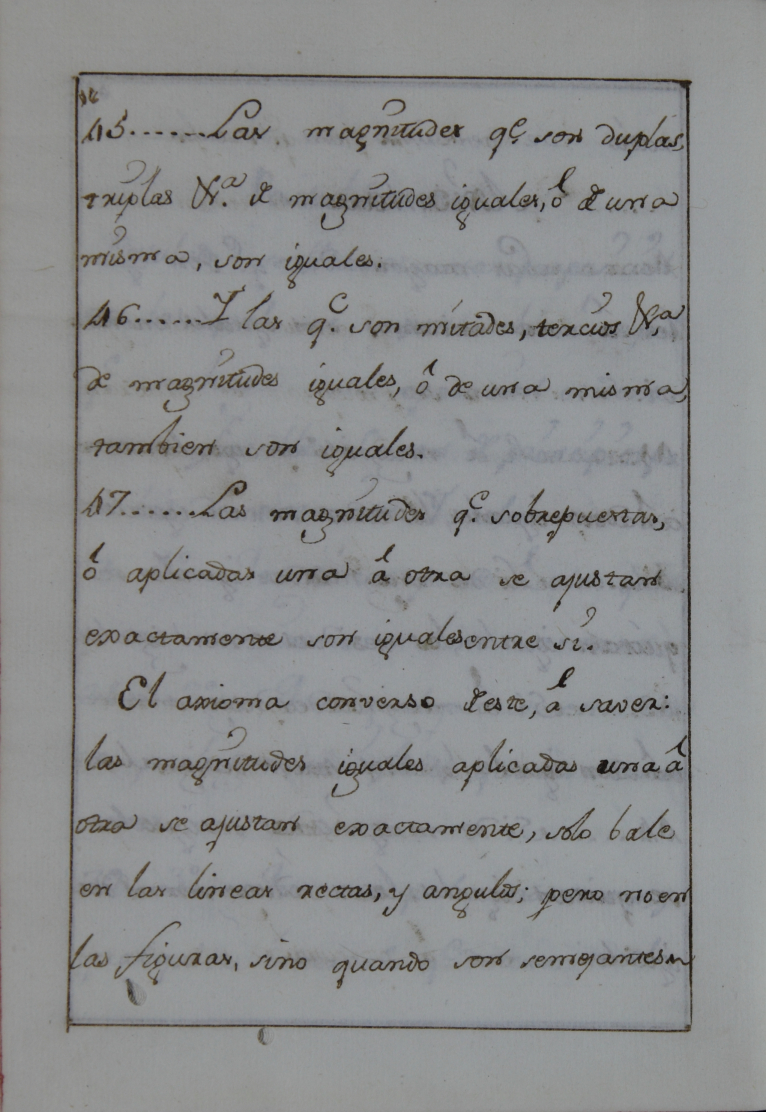 45......Las magnitudes q.e son duplas,
triplas &.a de magnitudes iguales, ó de una
misma, son iguales.
46......Y las q.e son mitades, tercios &.a
de magnitudes iguales, ó de una misma,
tambien son iguales.
47......Las magnitudes q.e sobrepuestas,
ó aplicadas una á otra se ajustan
exactamente son iguales entre si.
El axioma converso deste, á saver:
las magnitudes iguales aplicadas una á
otra se ajustan exactamente, solo bale
en las lineas rectas, y angulos; pero no en
las figuras, sino quando son semejantes